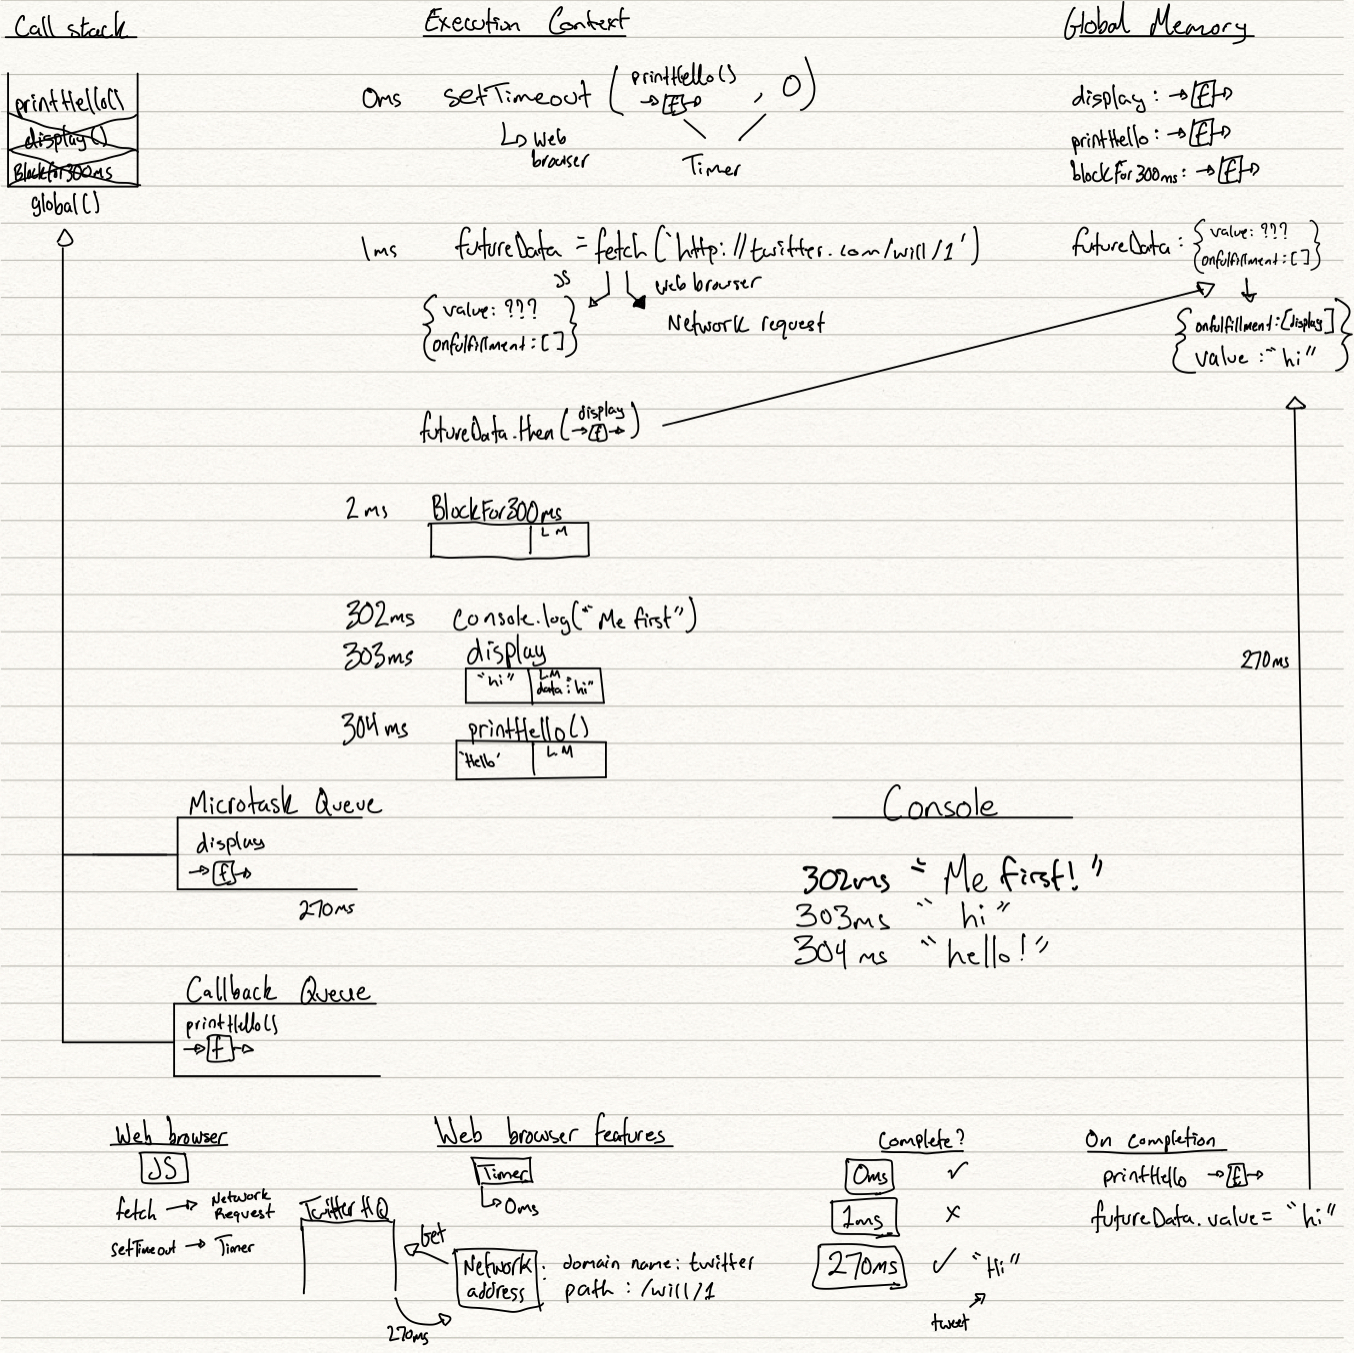 Call stack
printHello()
display()
BlockFor300ms
global()
Execution Context
0ms setTimeout ( printHello() →[f]→ , 0 )
↳ Web
browser
Timer
1ms futureData = fetch(`http://twitter.com/will/1')
JS
web browser
Network request
{ value: ???
onfulfillment: [ ] }
futureData.then( display →[f]→ )
2ms BlockFor300ms
LM
302ms console.log("Me first")
303ms display
"hi" LM
data: "hi"
304ms printHello()
'Hello' LM
Global Memory
display: →[f]→
printHello: →[f]→
blockfor300ms: →[f]→
futureData: { value: ???
onfulfillment: [ ] }
{ onfulfillment: [display]
value: "hi" }
270ms
Microtask Queue
display
→[f]→
270ms
Callback Queue
printHello()
→[f]→
Console
302ms "Me first!"
303ms "hi"
304ms "hello!"
Web browser
JS
fetch → Network
Request
setTimeout → Timer
Twitter HQ
Get
270ms
Web browser features
Timer
↳ 0ms
Network
address : domain name: twitter
path: /will/1
Complete?
0ms ✓
1ms x
270ms ✓ "Hi"
tweet
On completion
printHello →[f]→
futureData.value = "hi"